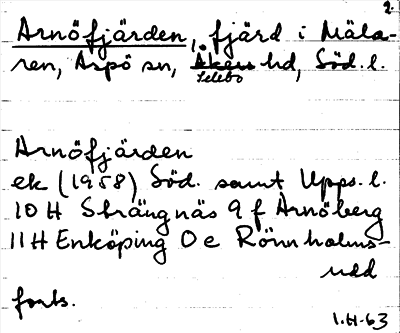 2.
Arnöfjärden, fjärd i Mäla-
ren, Aspö sn, Åkers hd, Söd. l.
Selebo
Arnöfjärden
ek (1958) Söd. samt Upps. l.
10 H Strängnäs 9 f Arnöberg
11 H Enköping 0 e Rönnholms-
udd
forts.
1.H-63